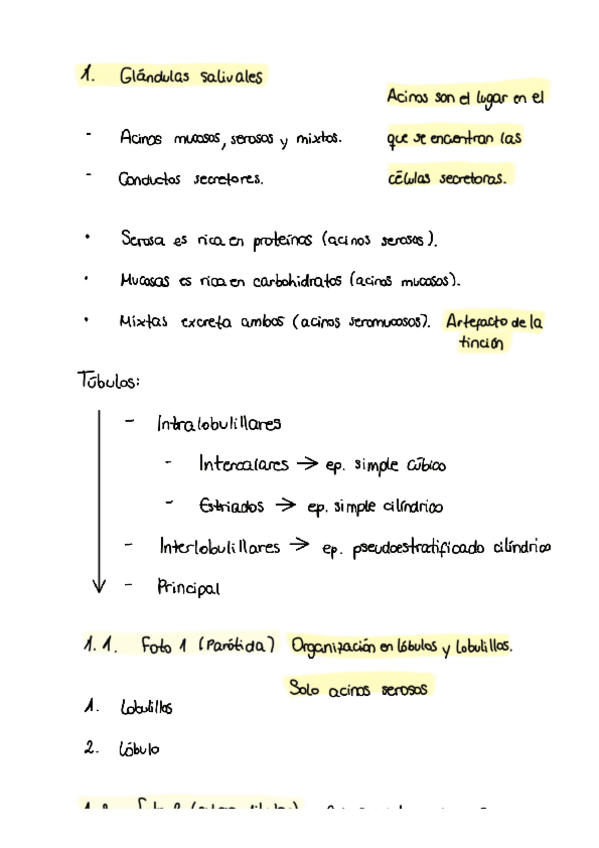 1. Glándulas salivales
Acinos son el lugar en el
- Acinos mucosos, serosos y mixtos.
que se encentran las
- Conductos secretores.
células secretoras.
• Serosa es rica en proteínas (acinos serosos).
• Mucosas es rica en carbohidratos (acinos mucosos).
• Mixtas excreta ambos (acinos seromucosos). Artefacto de la
tinción
Túbulos:
- Intralobulillares
- Intercalares → ep. simple cúbico
- Estriados → ep. simple cilíndrico
- Interlobulillares → ep. pseudoestratificado cilíndrico
- Principal
1.1. Foto 1 (Parótida) Organización en lóbulos y lobulillos.
Solo acinos serosos
1. Lobulillos
2. Lóbulo